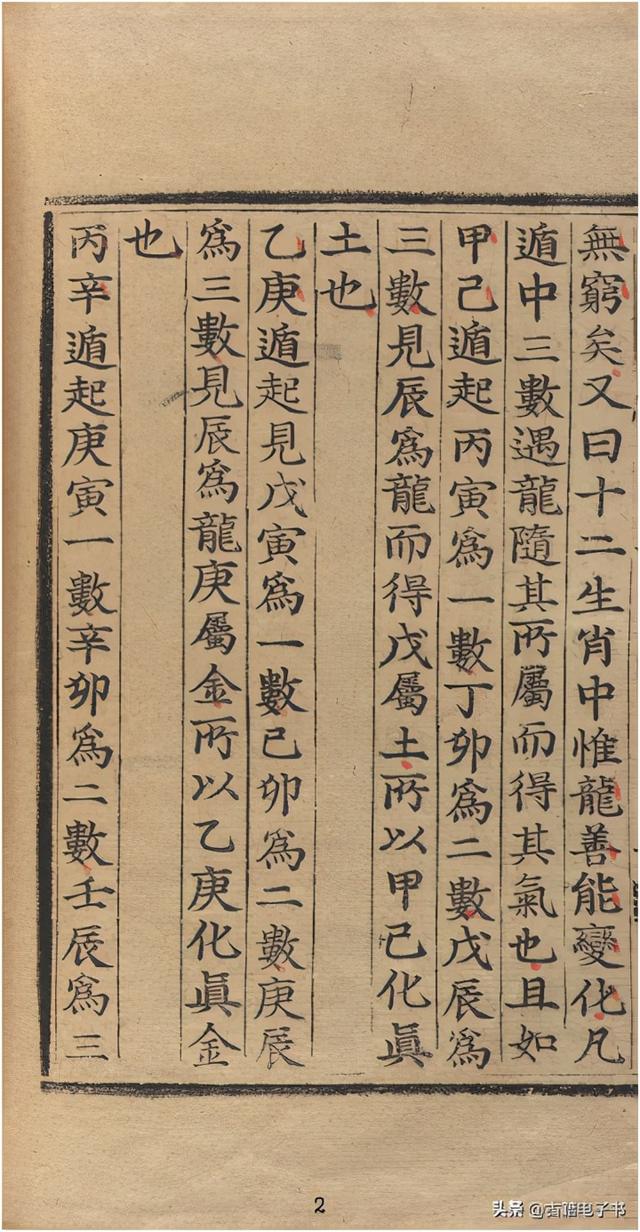 無窮矣又曰十二生肖中惟龍善能變化凡
遁中三數遇龍隨其所屬而得其氣也且如
甲己遁起丙寅爲一數丁卯爲二數戊辰爲
三數見辰爲龍而得戊屬土所以甲己化眞
土也
乙庚遁起見戊寅爲一數己卯爲二數庚辰
爲三數見辰爲龍庚屬金所以乙庚化眞金
也
丙辛遁起庚寅一數辛卯爲二數壬辰爲三
2
头条 @古籍电子书